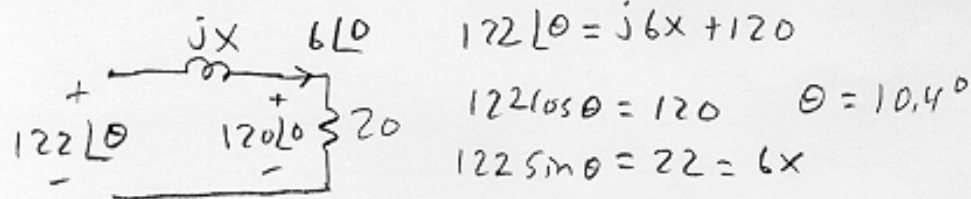 jX 6∠0
+ + 20
122∠θ 120∠0
- -
122∠θ = j6X + 120
122cosθ = 120 θ = 10.4°
122 sinθ = 22 = 6X